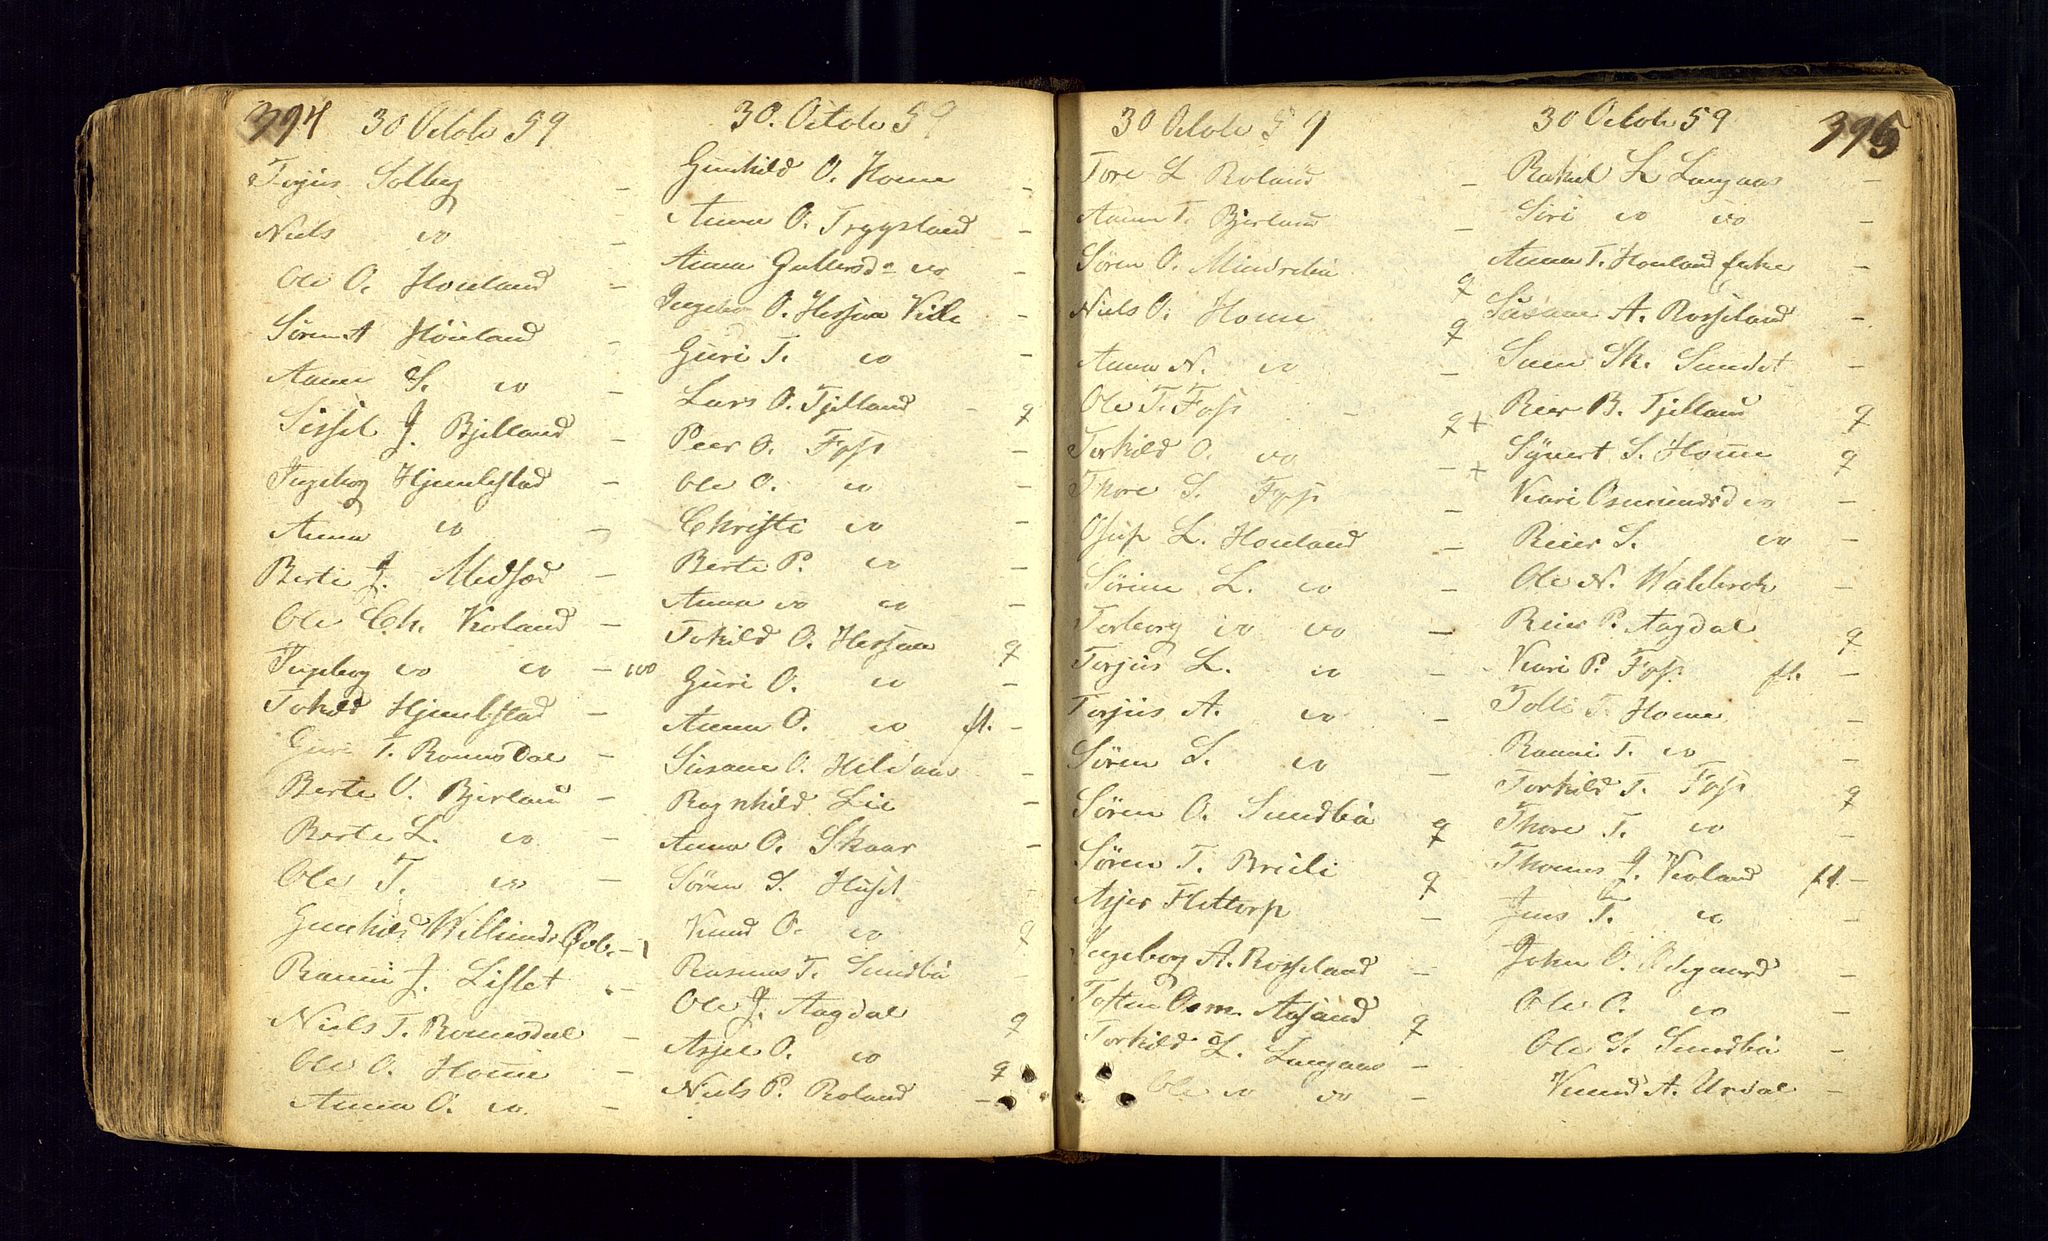 394
30 Octob 59
Torjus Solbeg -
Niels do -
Ole O. Houland -
Søren A Höuland -
Aanen S. do -
Sissel J. Bjelland -
Ingeborg Hjemlestad -
Anna do -
Berte J. Medsød -
Ole Ch. Kroland -
Ingeborg do do - do
Tokild Hjemlestad -
Guri T. Romsdal -
Berte O. Bjerland -
Berte L. do -
Ole T. do -
Gunhild Willumds -
Ranni J. Lislet -
Niels T. Romsdal -
Ole O. Home -
Anna O. do -
30. Octob 59
Gunhild O. Home -
Anna O. Trygsland -
Anna Gullersd do -
Ingebor O. Hessaa -
Guri T. do -
Lars O. Tjelland - q
Peer O. Foss -
Ole O. do -
Christi do -
Berte P. do -
Anna do do -
Tokild O. Hessaa q
Guri O. do -
Anna O. do fl. -
Susane O. Hildaas -
Ragnhild Lie -
Anna O. Skaar -
Søren S. Huset -
Knud O. do q
Rasmus T. Sundbø -
Ole J. Aagdal q
Asjel O. do q
Niels P. Roland -
30 Octob 59
Tore L Roland -
Aanen T. Bjerland -
Søren O. Mindrebø q
Niels O. Home q
Anna N. do -
Ole T. Foss - q
Torkild O. do -
Thore S. Foss -
Osup L. Houland -
Sørine L. do -
Torborg do do -
Torjus L. do -
Torjus A. do -
Søren S. do -
Søren O. Sundbø q
Søren T. Breili q
Asjer Flottorp -
Ingeborg A. Rosseland -
Tosten Osm. Aasand q
Torkild L. Langaas -
Ole do do -
395
30 Octob 59
Rakel L Langaas -
Siri do do -
Anna T. Houland enke -
Susane A. Rosseland -
Sven Sk. Sundet -
+ Reier B. Tjelland q
+ Syvert S. Home q
Kari Osmundsd do -
Reier S. do -
Ole N. Walebrok -
Reier P. Aagdal q
Kari P. Foss fl. -
Tolli T. Home -
Ranni T. do -
Torkild T. Foss q
Thore T. do -
Thomas J. Kroland fl. -
Jens T. do -
John O. Odegaard -
Ole O. do -
Ole S. Sundbø -
Knud A. Urdal -